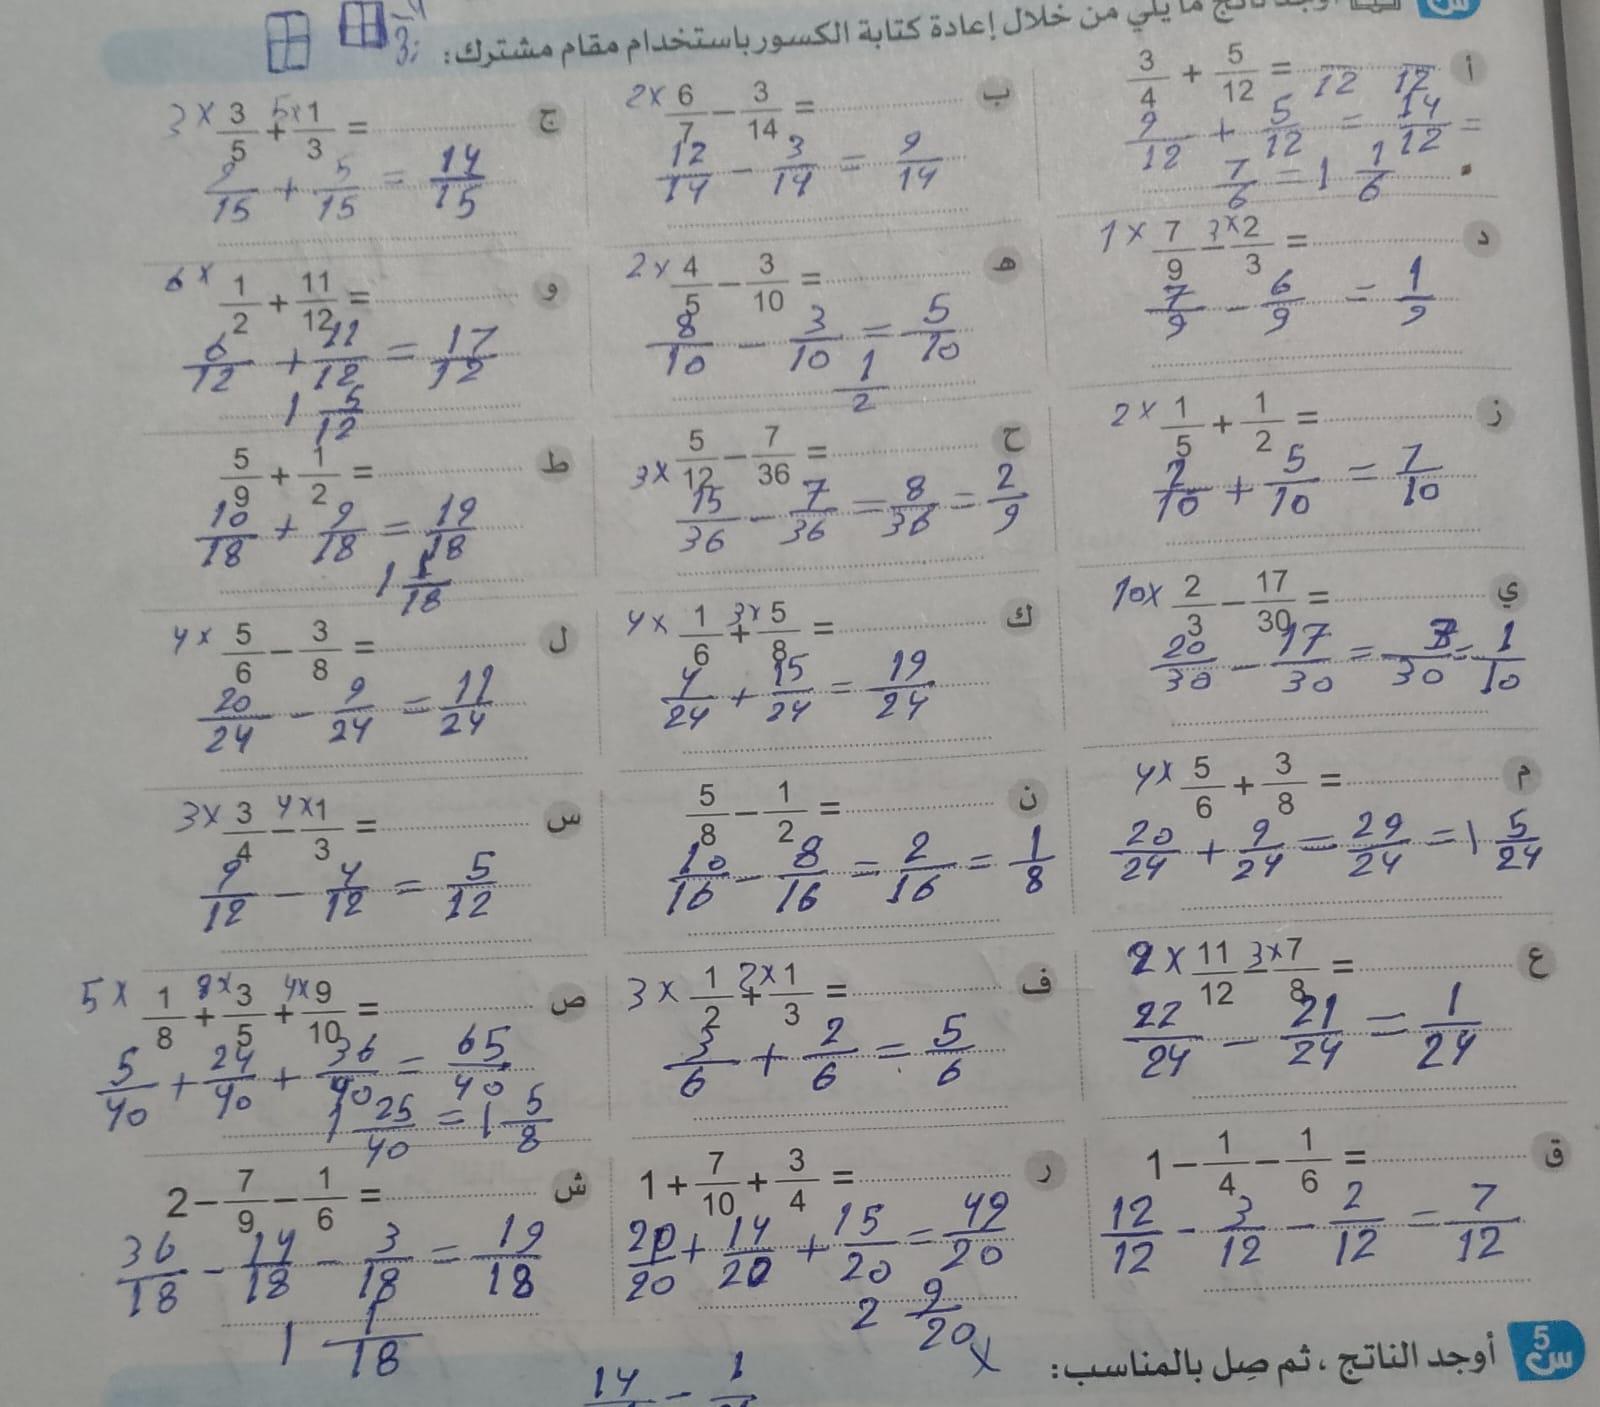 أوجد ناتج ما يلي من خلال إعادة كتابة الكسور باستخدام مقام مشترك:
أ 3/4 + 5/12 = 12 12
9/12 + 5/12 = 14/12 =
7/6 = 1 1/6
ب 2 × 6/7 − 3/14 =
12/14 − 3/14 = 9/14
ج 3 × 3/5 + 5×1/3 =
9/15 + 5/15 = 14/15
د 1 × 7/9 − 3×2/3 =
7/9 − 6/9 = 1/9
هـ 2 × 4/5 − 3/10 =
8/10 − 3/10 = 5/10
1/2
و 6 × 1/2 + 11/12 =
6/12 + 11/12 = 17/12
1 5/12
ز 2 × 1/5 + 1/2 =
2/10 + 5/10 = 7/10
ح 3 × 5/12 − 7/36 =
15/36 − 7/36 = 8/36 = 2/9
ط 5/9 + 1/2 =
10/18 + 9/18 = 19/18
1 1/18
ي 10 × 2/3 − 17/30 =
20/30 − 17/30 = 3/30 = 1/10
ك 4 × 1/6 + 3×5/8 =
4/24 + 15/24 = 19/24
ل 4 × 5/6 − 3/8 =
20/24 − 9/24 = 11/24
م 4 × 5/6 + 3/8 =
20/24 + 9/24 = 29/24 = 1 5/24
ن 5/8 − 1/2 =
10/16 − 8/16 = 2/16 = 1/8
س 3 × 3/4 − 4×1/3 =
9/12 − 4/12 = 5/12
ع 2 × 11/12 − 3×7/8 =
22/24 − 21/24 = 1/24
ف 3 × 1/2 + 2×1/3 =
3/6 + 2/6 = 5/6
ص 5 × 1/8 + 8×3/5 + 4×9/10 =
5/40 + 24/40 + 36/40 = 65/40
1 25/40 = 1 5/8
ق 1 − 1/4 − 1/6 =
12/12 − 3/12 − 2/12 = 7/12
ر 1 + 7/10 + 3/4 =
20/20 + 14/20 + 15/20 = 49/20
2 9/20 x
ش 2 − 7/9 − 1/6 =
36/18 − 14/18 − 3/18 = 19/18
1 1/18
س5 أوجد الناتج ، ثم صِل بالمناسب:
14 − 1